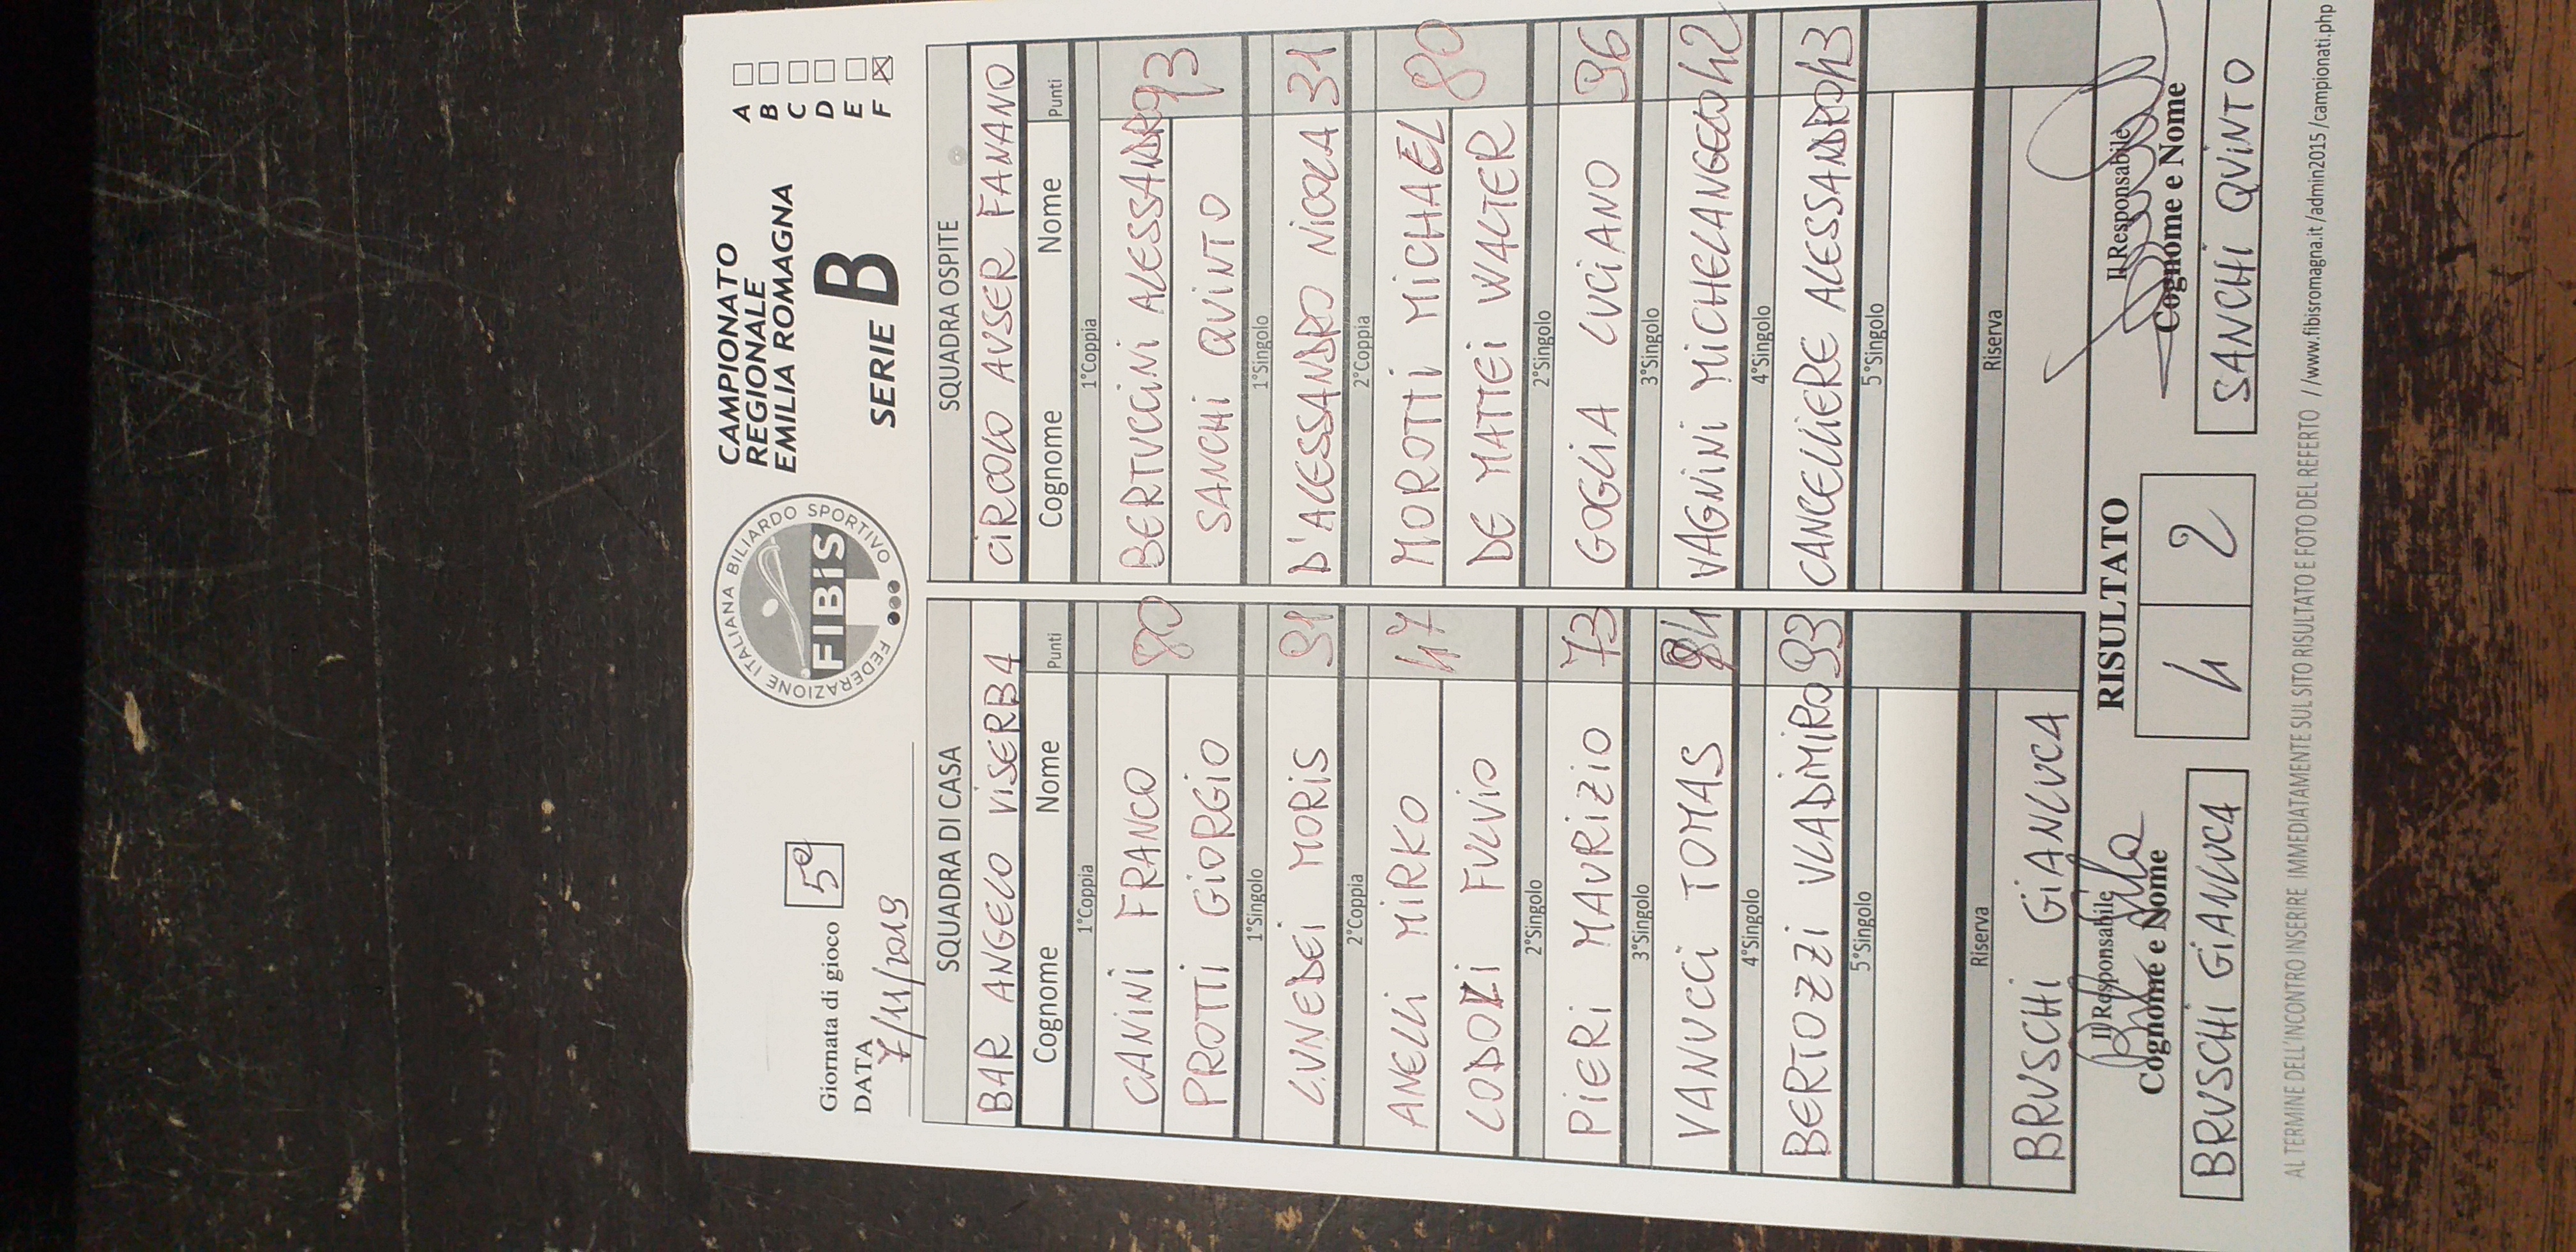 Giornata di gioco 5ª
DATA 7/11/2019
FEDERAZIONE ITALIANA BILIARDO SPORTIVO
FIBiS
CAMPIONATO
REGIONALE
EMILIA ROMAGNA
SERIE B
A
B
C
D
E
F
SQUADRA DI CASA
BAR ANGELO ViSERBA
Cognome Nome Punti
1°Coppia
CANiNi FRANCO 80
PROTTi GiORGiO
1°Singolo
LUNEDEi MORiS 91
2°Coppia
ANELLi MiRKO 47
LODOLi FULViO
2°Singolo
PiERi MAURiZiO 73
3°Singolo
VANUCCi TOMAS 84
4°Singolo
BERTOZZi VLADiMiRO 93
5°Singolo
Riserva
BRUSCHi GiANLUCA
SQUADRA OSPITE
CiRCOLO AUSER FANANO
Cognome Nome Punti
1°Coppia
BERTUCCiNi ALESSANDRO 93
SANCHi QUiNTO
1°Singolo
D'ALESSANDRO NiCOLA 31
2°Coppia
MOROTTi MiCHAEL 80
DE MATTEi WALTER
2°Singolo
GOGLiA LUCiANO 96
3°Singolo
VAGNiNi MiCHELANGELO 42
4°Singolo
CANCELLiERE ALESSANDRO 43
5°Singolo
Riserva
Il Responsabile
Cognome e Nome
BRUSCHi GiANLUCA
RISULTATO
4 2
Il Responsabile
Cognome e Nome
SANCHi QUiNTO
AL TERMINE DELL'INCONTRO INSERIRE IMMEDIATAMENTE SUL SITO RISULTATO E FOTO DEL REFERTO //www.fibisromagna.it/admin2015/campionati.php